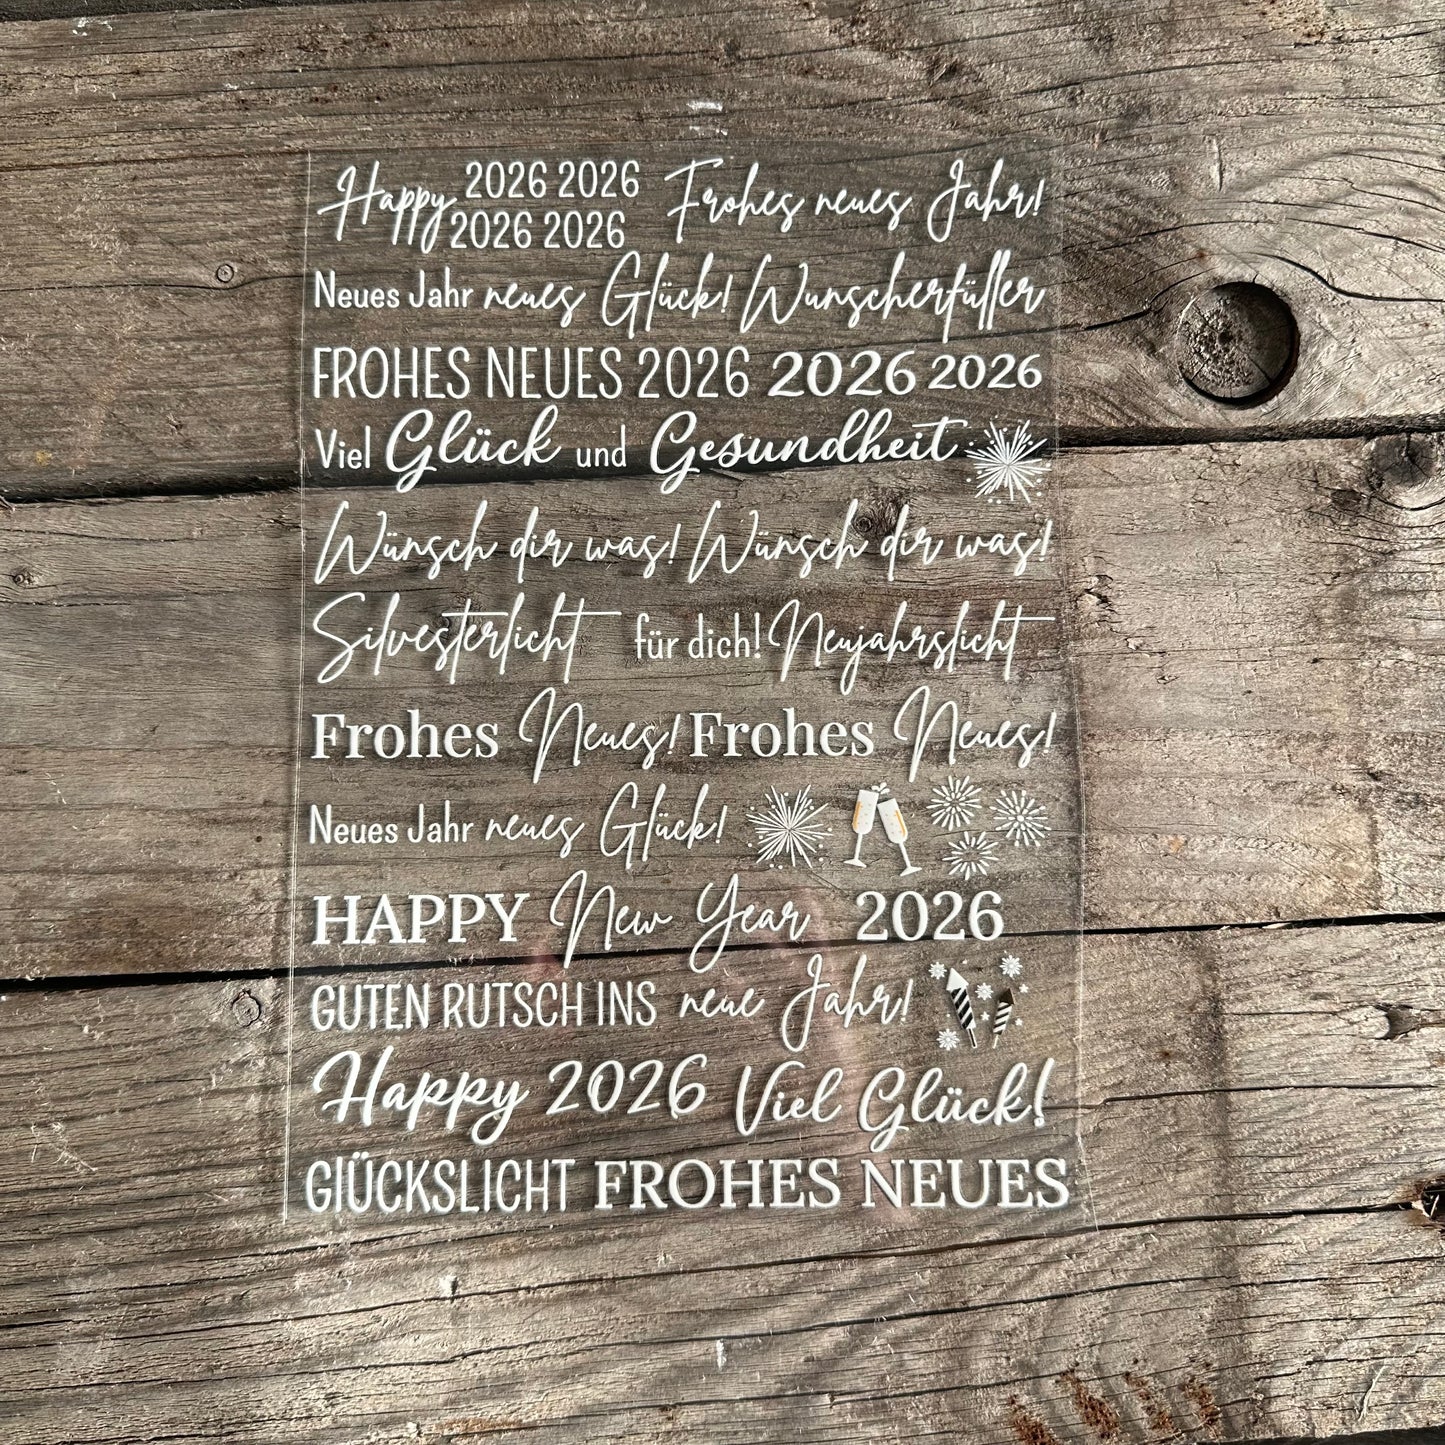 Happy 2026 2026 Frohes neues Jahr!
2026 2026
Neues Jahr neues Glück! Wunscherfüller
FROHES NEUES 2026 2026 2026
Viel Glück und Gesundheit
Wünsch dir was! Wünsch dir was!
Silvesterlicht für dich! Neujahrslicht
Frohes Neues! Frohes Neues!
Neues Jahr neues Glück!
HAPPY New Year 2026
GUTEN RUTSCH INS neue Jahr!
Happy 2026 Viel Glück!
GlÜCKSLICHT FROHES NEUES